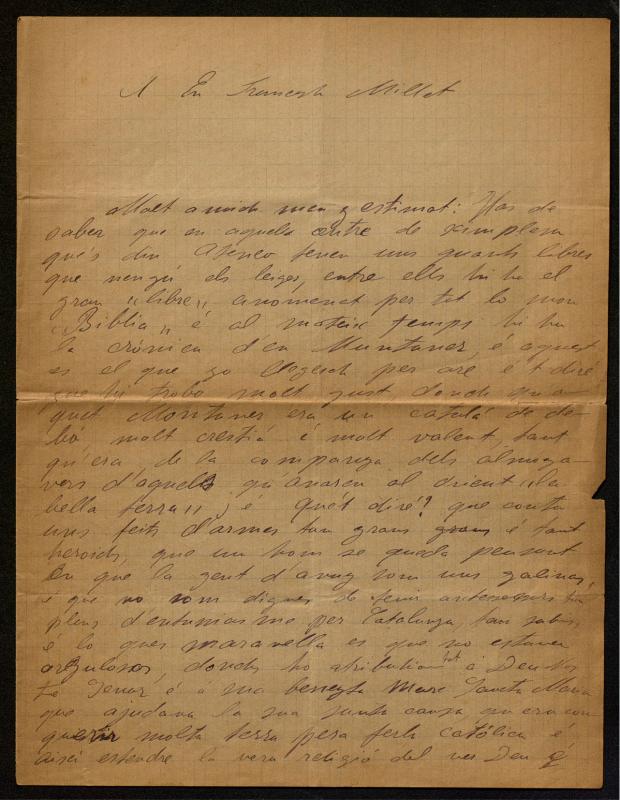 A En Francesch Millet
Molt amich meu y estimat: Has de
saber que en aquela centre de ximplesa
qu'es diu Ateneo tenen uns quants libres
que ningú els leigeg, entre ells hi ha el
gran "libre" anomenat per tot lo mon
"Biblia" é al mateix temps hi ha
la crónica d'en Muntaner, é aquest
es el que jo llegesch per are é t diré
que hi trobo molt gust donchs qu'a
quet Montaner era un catalá de de
bó, molt crestiá é molt valent, tant
qu'era de la companyia dels almoga
vers d'aquells qu'anaren al orient "la
bella terra"; é qué't diré? que conta
uns feits d'armes tan grans é tant
heroichs, que un hom se queda pensant
en que la gent d'avuy som uns galinas,
é que no som dignes de tenir antecesors tan
plens d'entusiasme per Catalunya, tan sabis,
é lo ques maravella es que no estaven
orgulosos, donchs ho atribuhian tot á Deu Nos
tre Senor é á sa beneyta Mare Santa Maria
que ajudava la sua santa causa qu'era con
querir molta terra pera ferla católica é
aixi estendre la vera religió del ver Deu q